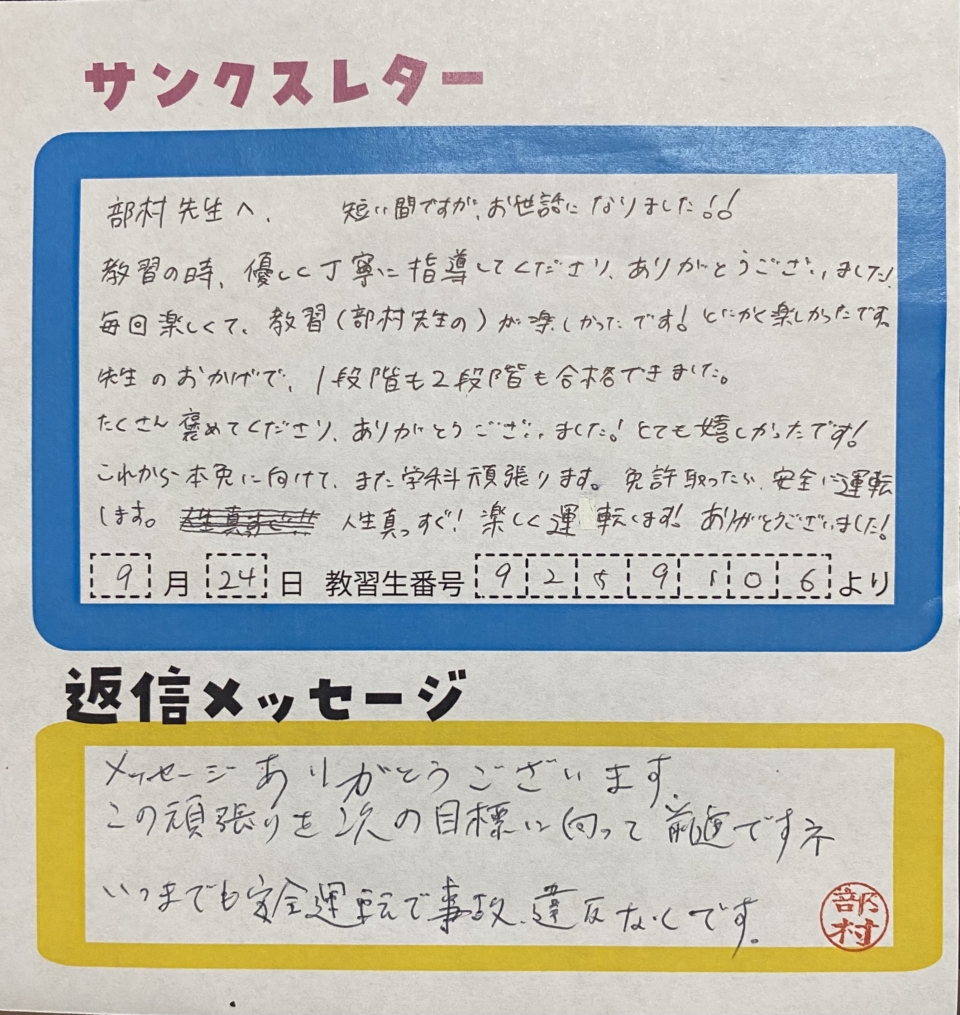 サンクスレター
部村先生へ、 短い間ですが、お世話になりました!!
教習の時、優しく丁寧に指導してくださり、ありがとうございました!
毎回楽しくて、教習(部村先生の)が楽しかったです!とにかく楽しかったです。
先生のおかげで、1段階も2段階も合格できました。
たくさん褒めてくださり、ありがとうございました!とても嬉しかったです!
これから本免に向けて、また学科頑張ります。免許取ったら、安全に運転
します。 人生真っすぐ!楽しく運転します!ありがとうございました!
9月24日 教習生番号 9259106より
返信メッセージ
メッセージありがとうございます。
この頑張りを次の目標に向って前進ですネ
いつまでも安全運転で事故、違反なくです。
部村